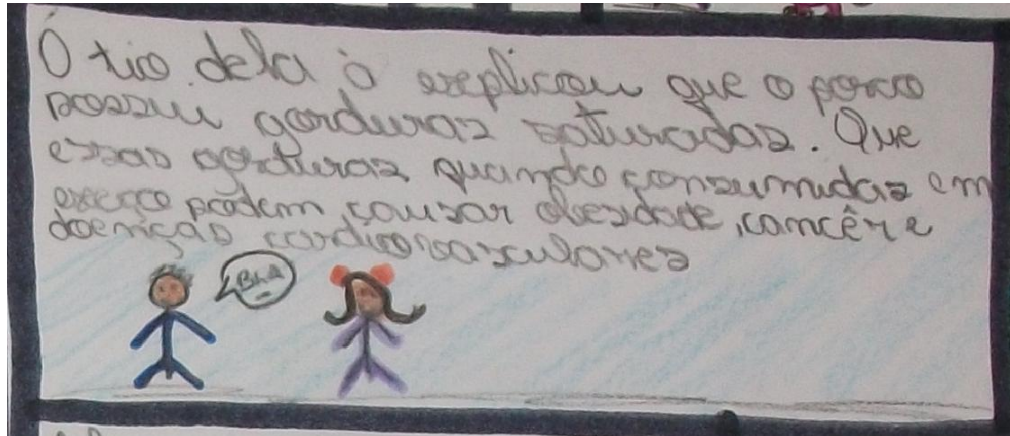 Ó tio dela ò explicou que o porco
possui gorduras saturadas. Que
essas gorduras quando consumidas em
exerço podem causar obesidade, cancêr e
doenças cardiovasculares
BLA